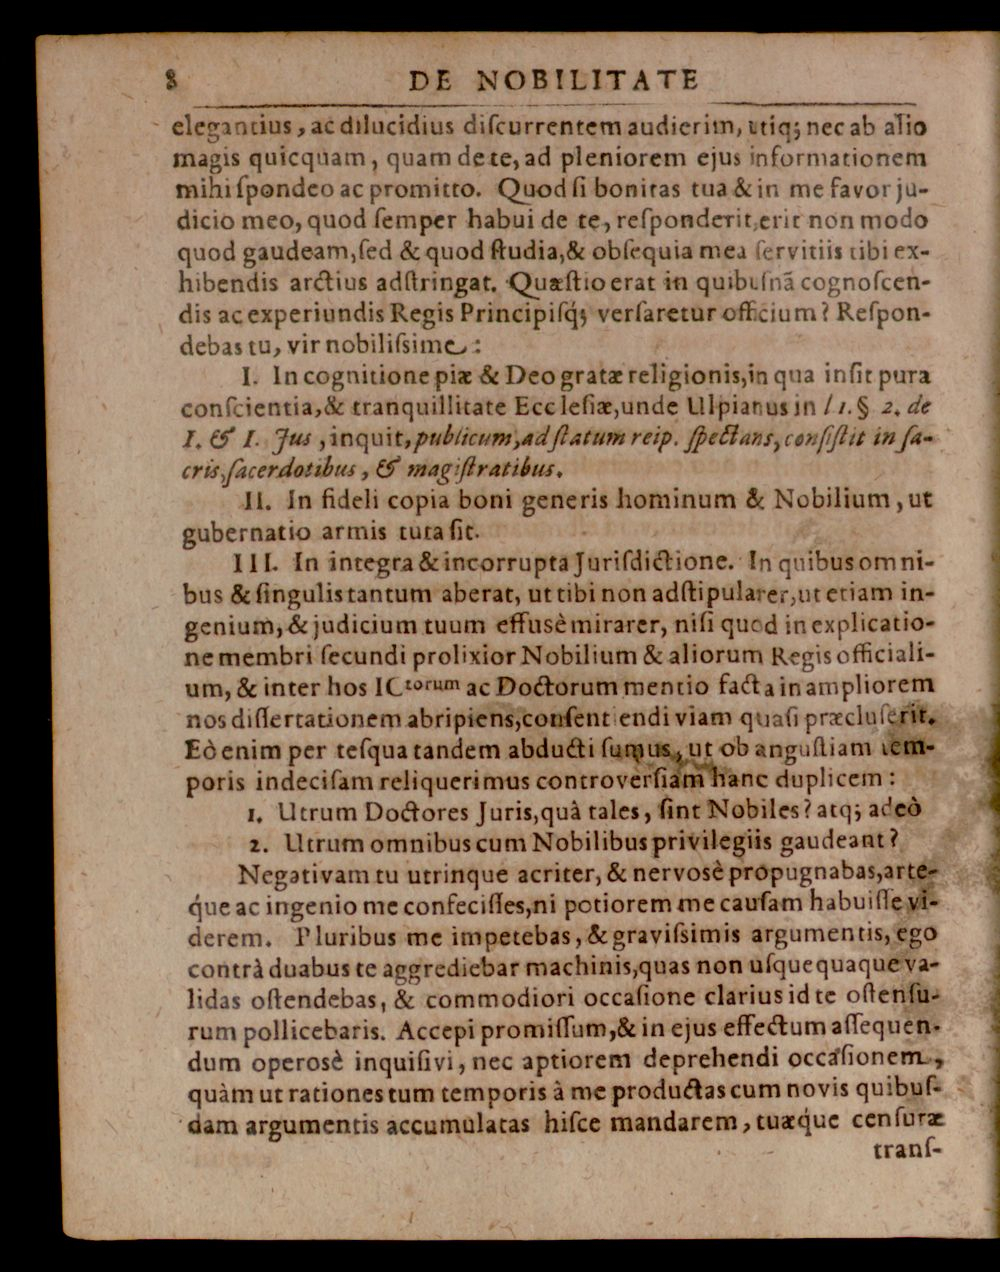 8 DE NOBILITATE
elegantius, ac dilucidius diſcurrentem audierim, utiq; nec ab alio
magis quicquam, quam de te, ad pleniorem ejus informationem
mihi ſpondeo ac promitto. Quod ſi bonitas tua & in me favor ju-
dicio meo, quod ſemper habui de te, reſponderit, erit non modo
quod gaudeam, ſed & quod ſtudia, & obſequia mea ſervitiis tibi ex-
hibendis arctius adſtringat. Quæſtio erat in quibuſnã cognoſcen-
dis ac experiundis Regis Principiſq́; verſaretur officium? Reſpon-
debas tu, vir nobiliſsime:
I. In cognitione piæ & Deo gratæ religionis, in qua inſit pura
conſcientia, & tranquillitate Eccleſiæ, unde Ulpianus in l 1. § 2. de
I. & I. Jus, inquit, publicum, ad ſtatum reip. ſpectans, conſiſtit in ſa-
cris, ſacerdotibus, & magiſtratibus.
II. In fideli copia boni generis hominum & Nobilium, ut
gubernatio armis tuta ſit.
III. In integra & incorrupta Juriſdictione. In quibus omni-
bus & ſingulis tantum aberat, ut tibi non adſtipularer, ut etiam in-
genium, & judicium tuum effusè mirarer, niſi quod in explicatio-
ne membri ſecundi prolixior Nobilium & aliorum Regis officiali-
um, & inter hos ICtorum ac Doctorum mentio facta in ampliorem
nos diſſertationem abripiens, conſentiendi viam quaſi præcluſerit.
Eò enim per teſqua tandem abducti ſumus, ut ob anguſtiam tem-
poris indeciſam reliquerimus controverſiam hanc duplicem:
1. Utrum Doctores Juris, quà tales, ſint Nobiles? atq; adeò
2. Utrum omnibus cum Nobilibus privilegiis gaudeant?
Negativam tu utrinque acriter, & nervosè propugnabas, arte-
q́ue ac ingenio me confeciſſes, ni potiorem me cauſam habuiſſe vi-
derem. Pluribus me impetebas, & graviſsimis argumentis, ego
contrà duabus te aggrediebar machinis, quas non uſquequaque va-
lidas oſtendebas, & commodiori occaſione clarius id te oſtenſu-
rum pollicebaris. Accepi promiſſum, & in ejus effectum aſſequen-
dum operosè inquiſivi, nec aptiorem deprehendi occaſionem,
quàm ut rationes tum temporis à me productas cum novis quibuſ-
dam argumentis accumulatas hiſce mandarem, tuæq́ue cenſuræ
tranſ-